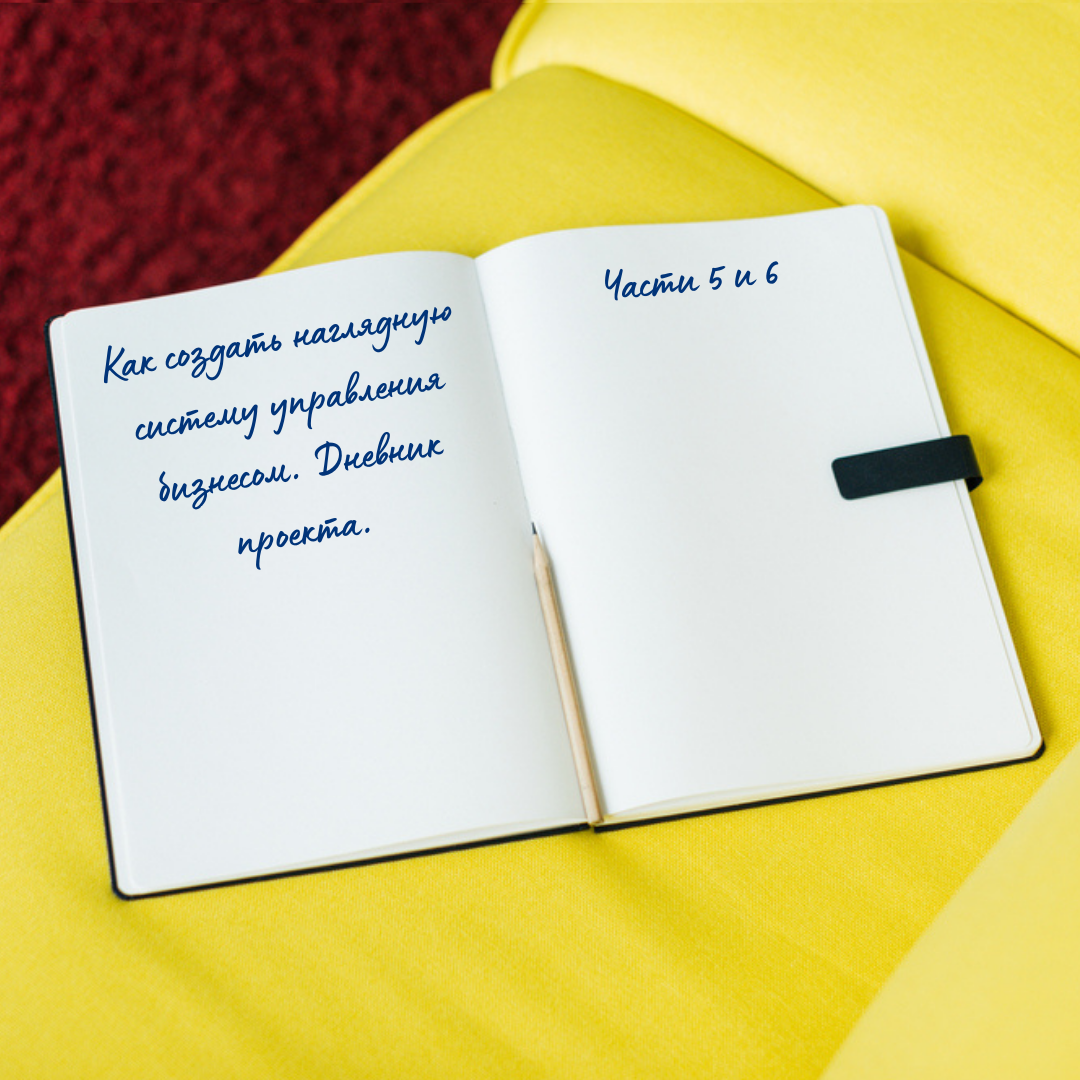 Как создать наглядную
систему управления
бизнесом. Дневник
проекта.
Части 5 и 6